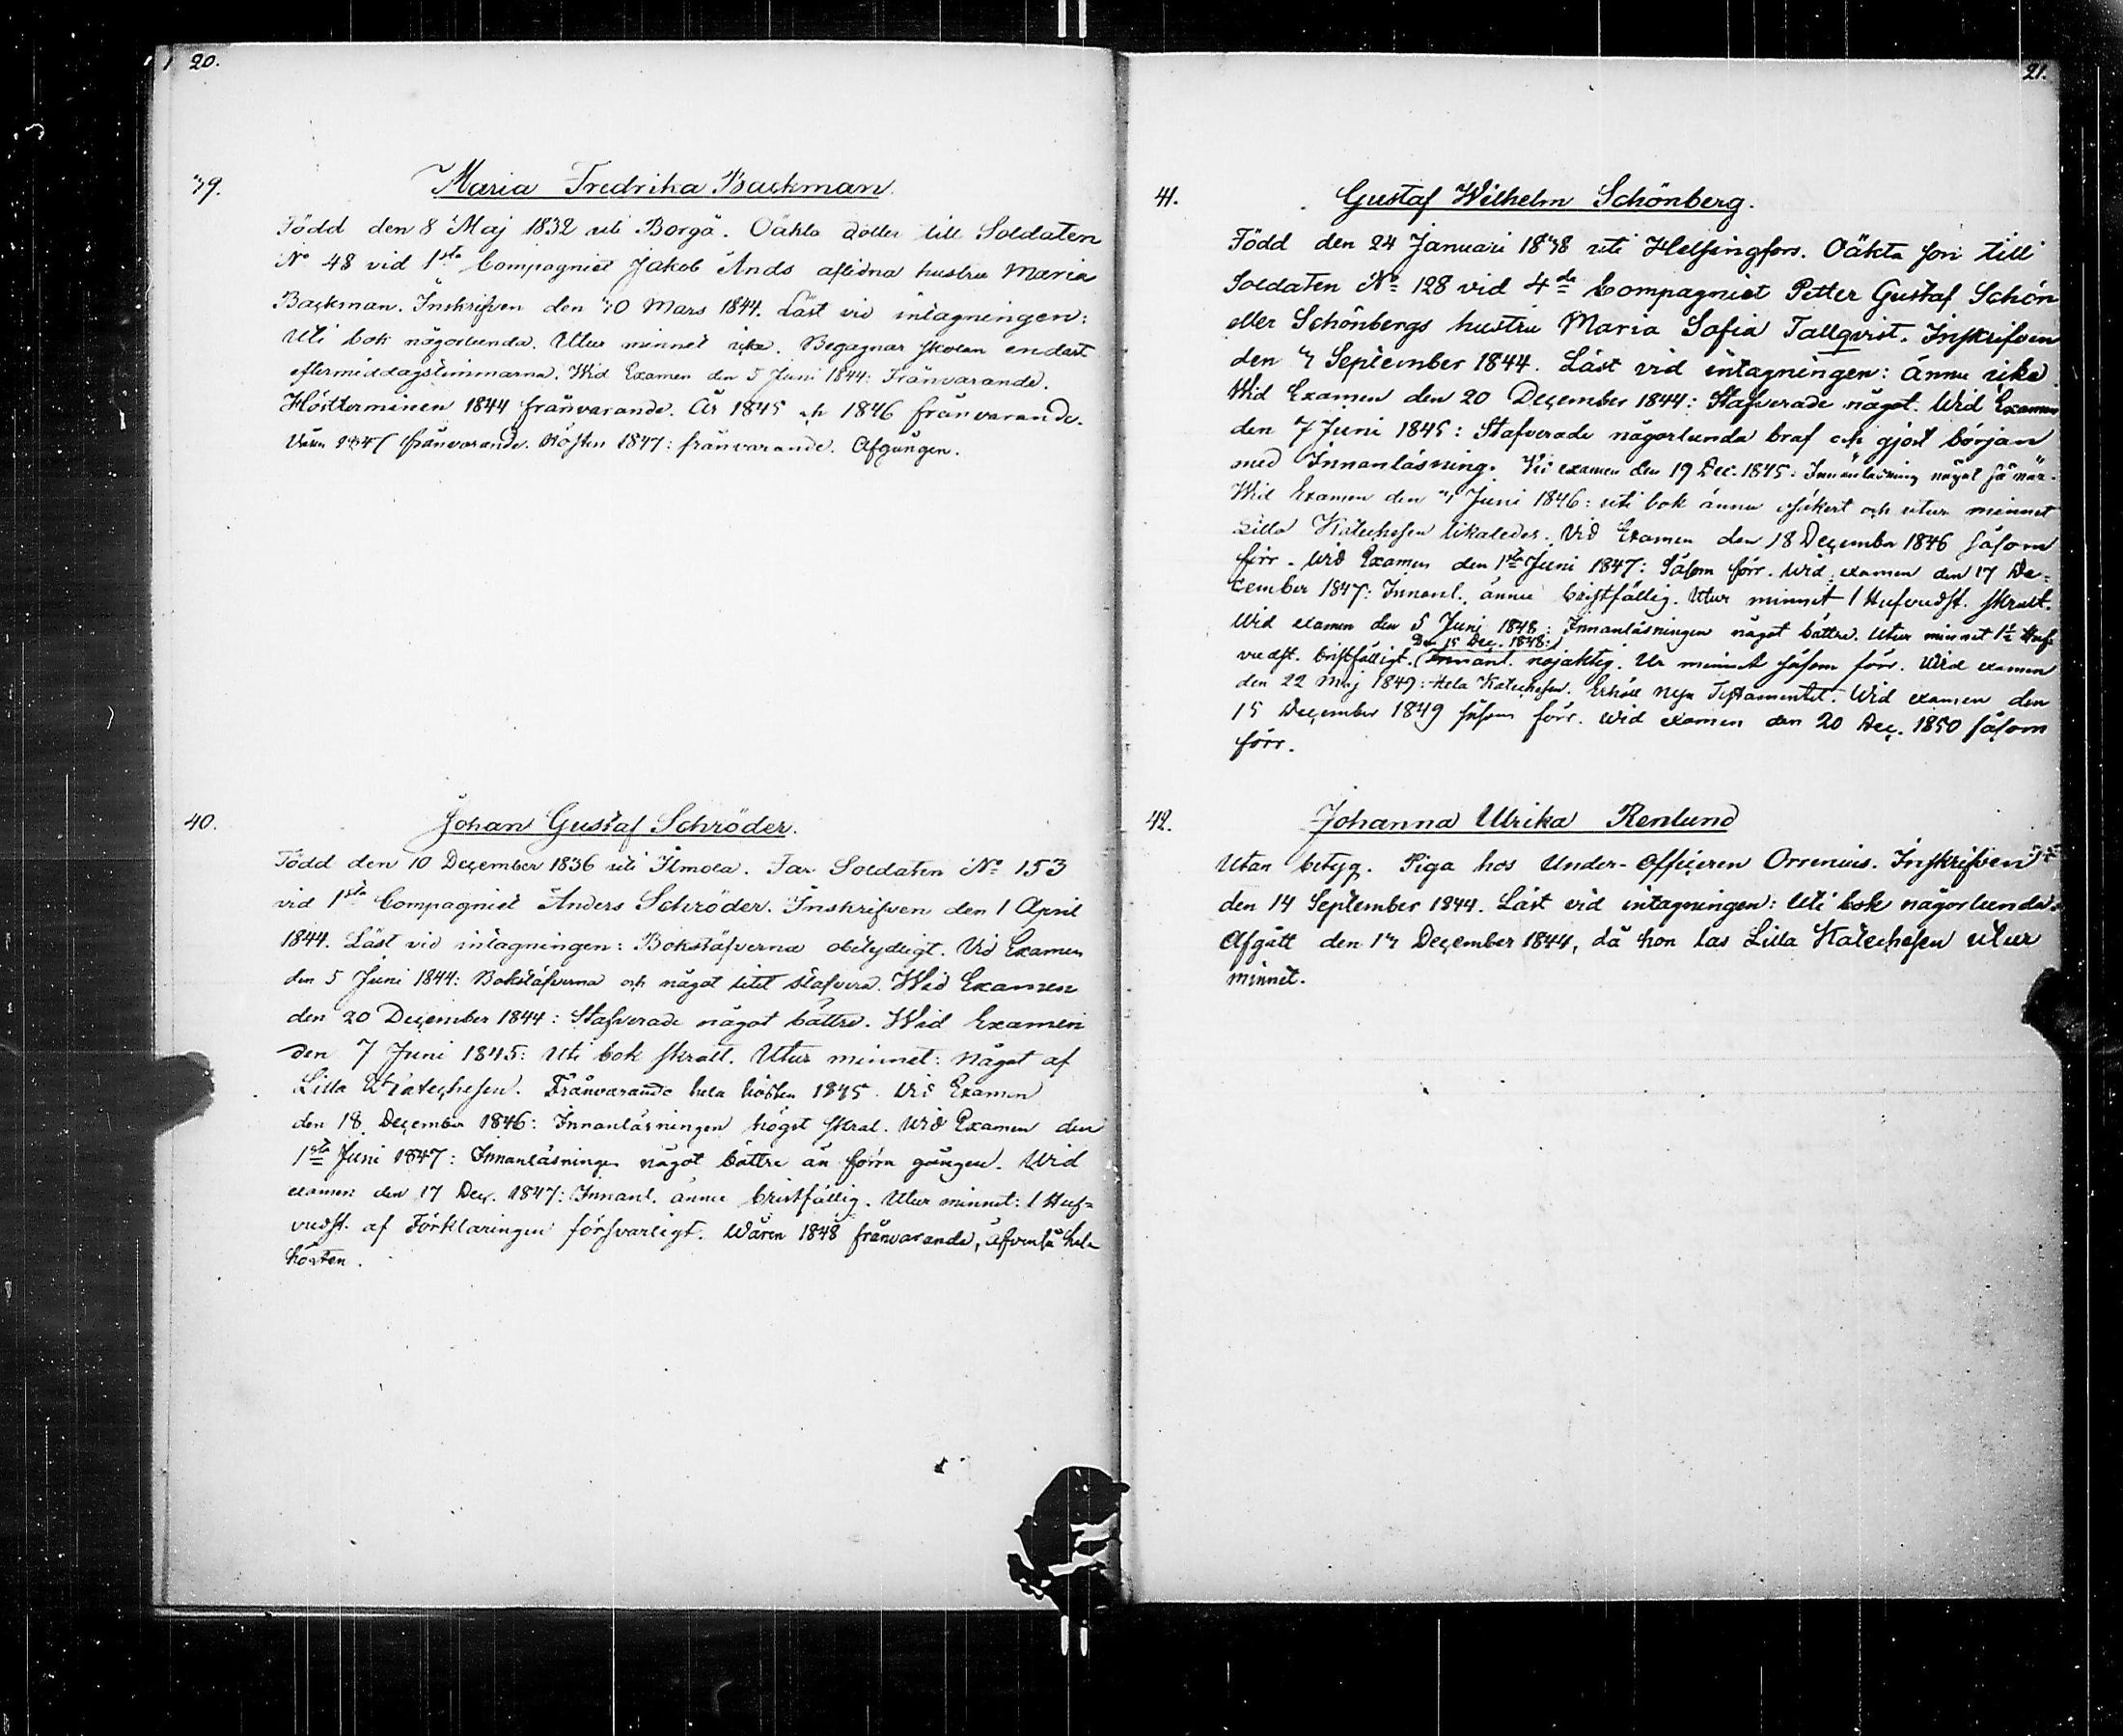 20.
39.
Maria Fredrika Backman.
Född den 8 Maj 1832 uti Borgå. Oäkta dotter till Soldaten
No 48 vid 1sta Compagniet Jakob Ands aflidna hustru Maria
Backman. Inskrifven den 30 Mars 1844. Läst vid intagningen:
Uti bok någorlunda. Utur minnet icke. Begagnar skolan endast
eftermiddagstimmarna. Wid Examen den 5 Juni 1844: Frånvarande.
Höstterminen 1844 frånvarande. År 1845 och 1846 frånvarande.
Våren 1847 frånvarande. Hösten 1847: frånvarande. Afgången.
40.
Johan Gustaf Schröder.
Född den 10 December 1836 uti Ilmola. Far Soldaten No 153
vid 1sta Compagniet Anders Schröder. Inskrifven den 1 April
1844. Läst vid intagningen: Bokstäfverna obetydligt. Vid Examen
den 5 Juni 1844: Bokstäfverna och något litet stafvera. Wid Examen
den 20 December 1844: Stafverade något bättre. Wid Examen
den 7 Juni 1845: Uti bok skralt. Utur minnet: Något af
Lilla Katechesen. Frånvarande hela hösten 1845. Vid Examen
den 18 December 1846: Innanläsningen högst skral. Wid Examen den
1sta Juni 1847: Innanläsningen något bättre än förra gången. Wid
examen den 17 Dec. 1847: Innanl. ännu bristfällig. Utur minnet: 1 Huf=
vudst. af Förklaringen försvarligt. Wåren 1848 frånvarande, äfvenså hela
hösten.
21.
41.
Gustaf Wilhelm Schönberg.
Född den 24 Januari 1838 uti Helsingfors. Oäkta son till
Soldaten No 128 vid 4de Compagniet Petter Gustaf Schön
eller Schönbergs hustru Maria Sofia Tallqvist. Inskrifven
den 3 September 1844. Läst vid intagningen: ännu icke.
Wid Examen den 20 December 1844: Stafverade något. Wid Examen
den 7 Juni 1845: Stafverade någorlunda braf och gjort början
med Innanläsning. Vid examen den 19 Dec. 1845: Innanläsning något så när.
Wid Examen den 3 Juni 1846: uti bok ännu osäkert och utur minnet
Lilla Katechesen likaledes. Vid Examen den 18 December 1846 såsom
förr. Wid Examen den 1sta Juni 1847: Såsom förr. Wid examen den 17 De=
cember 1847: Innanl. ännu bristfällig. Utur minnet 1 Hufvudst. skralt.
Wid examen den 5 Juni 1848: Innanläsningen något bättre. Utur minnet 1½ Huf=
Den 15 Dec. 1848:
vudst. bristfälligt. (Innanl. nöjaktig. Ur minnet såsom förr. Wid examen
den 22 Maj 1849: Hela Katechesen. Erhöll Nya Testamentet. Wid examen den
15 December 1849 såsom förr. Wid examen den 20 Dec. 1850 såsom
förr.
42.
Johanna Ulrika Renlund
Utan betyg. Piga hos Under-Officeren Orrenius. Inskrifven
den 14 September 1844. Läst vid intagningen: Uti bok någorlunda.
Afgått den 13 December 1844, då hon las Lilla Katechesen utur
minnet.